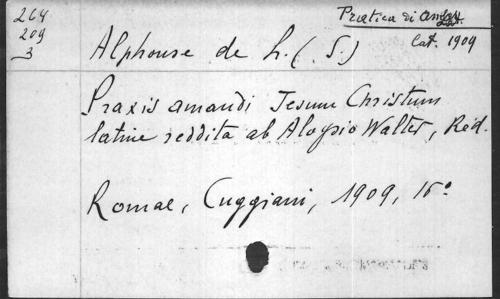 264
209
3
Pratica di amar
Lat. 1909
Alphonse de L. (S.)
Praxis amandi Jesum Christum
latine reddita ab Aloysio Walter, Red.
Romae, Cuggiani, 1909, 16°